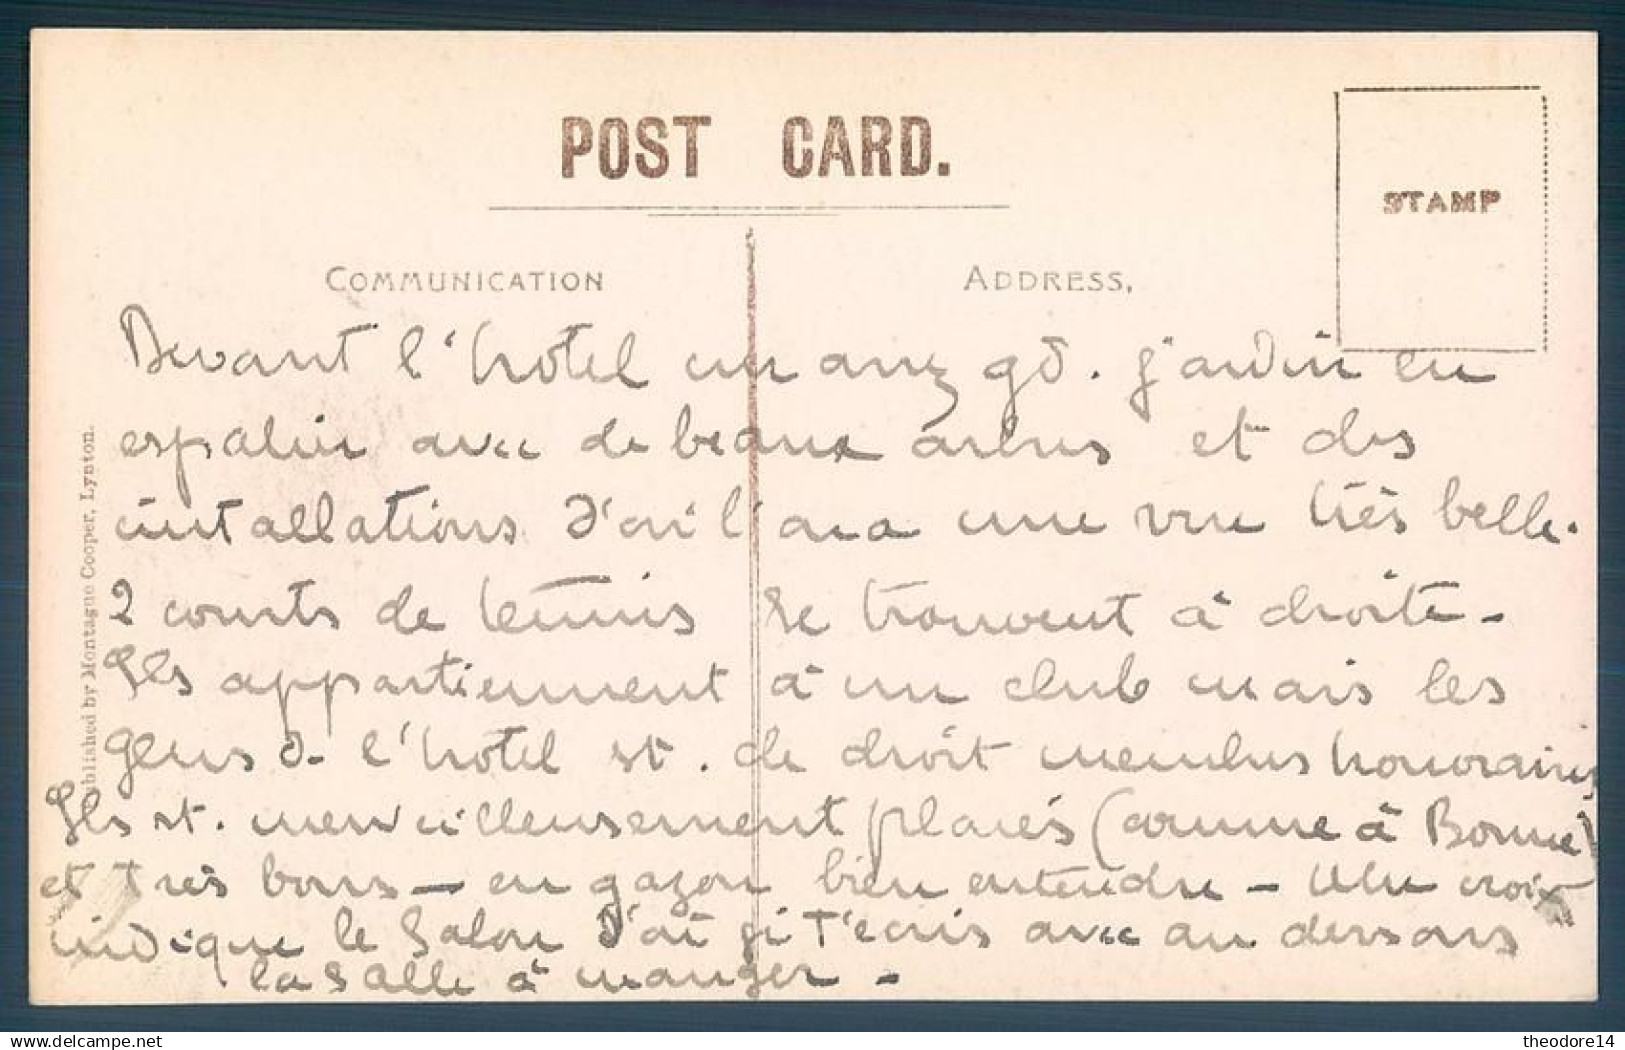 POST CARD.
STAMP
COMMUNICATION
ADDRESS,
Devant l'hôtel un assez gd. jardin en
espalier avec de beaux arbres et des
installations d'où l'on a une vue très belle.
2 courts de tennis se trouvent à droite -
Ils appartiennent à un club mais les
gens de l'hôtel st. de droit membres honoraires
Ils st. merveilleusement placés (comme à Bonne)
et très bons - en gazon bien entendu - Une croix
indique le Salon d'où je t'écris avec au dessous
la salle à manger -
Published by Montague Cooper, Lynton.
theodore14